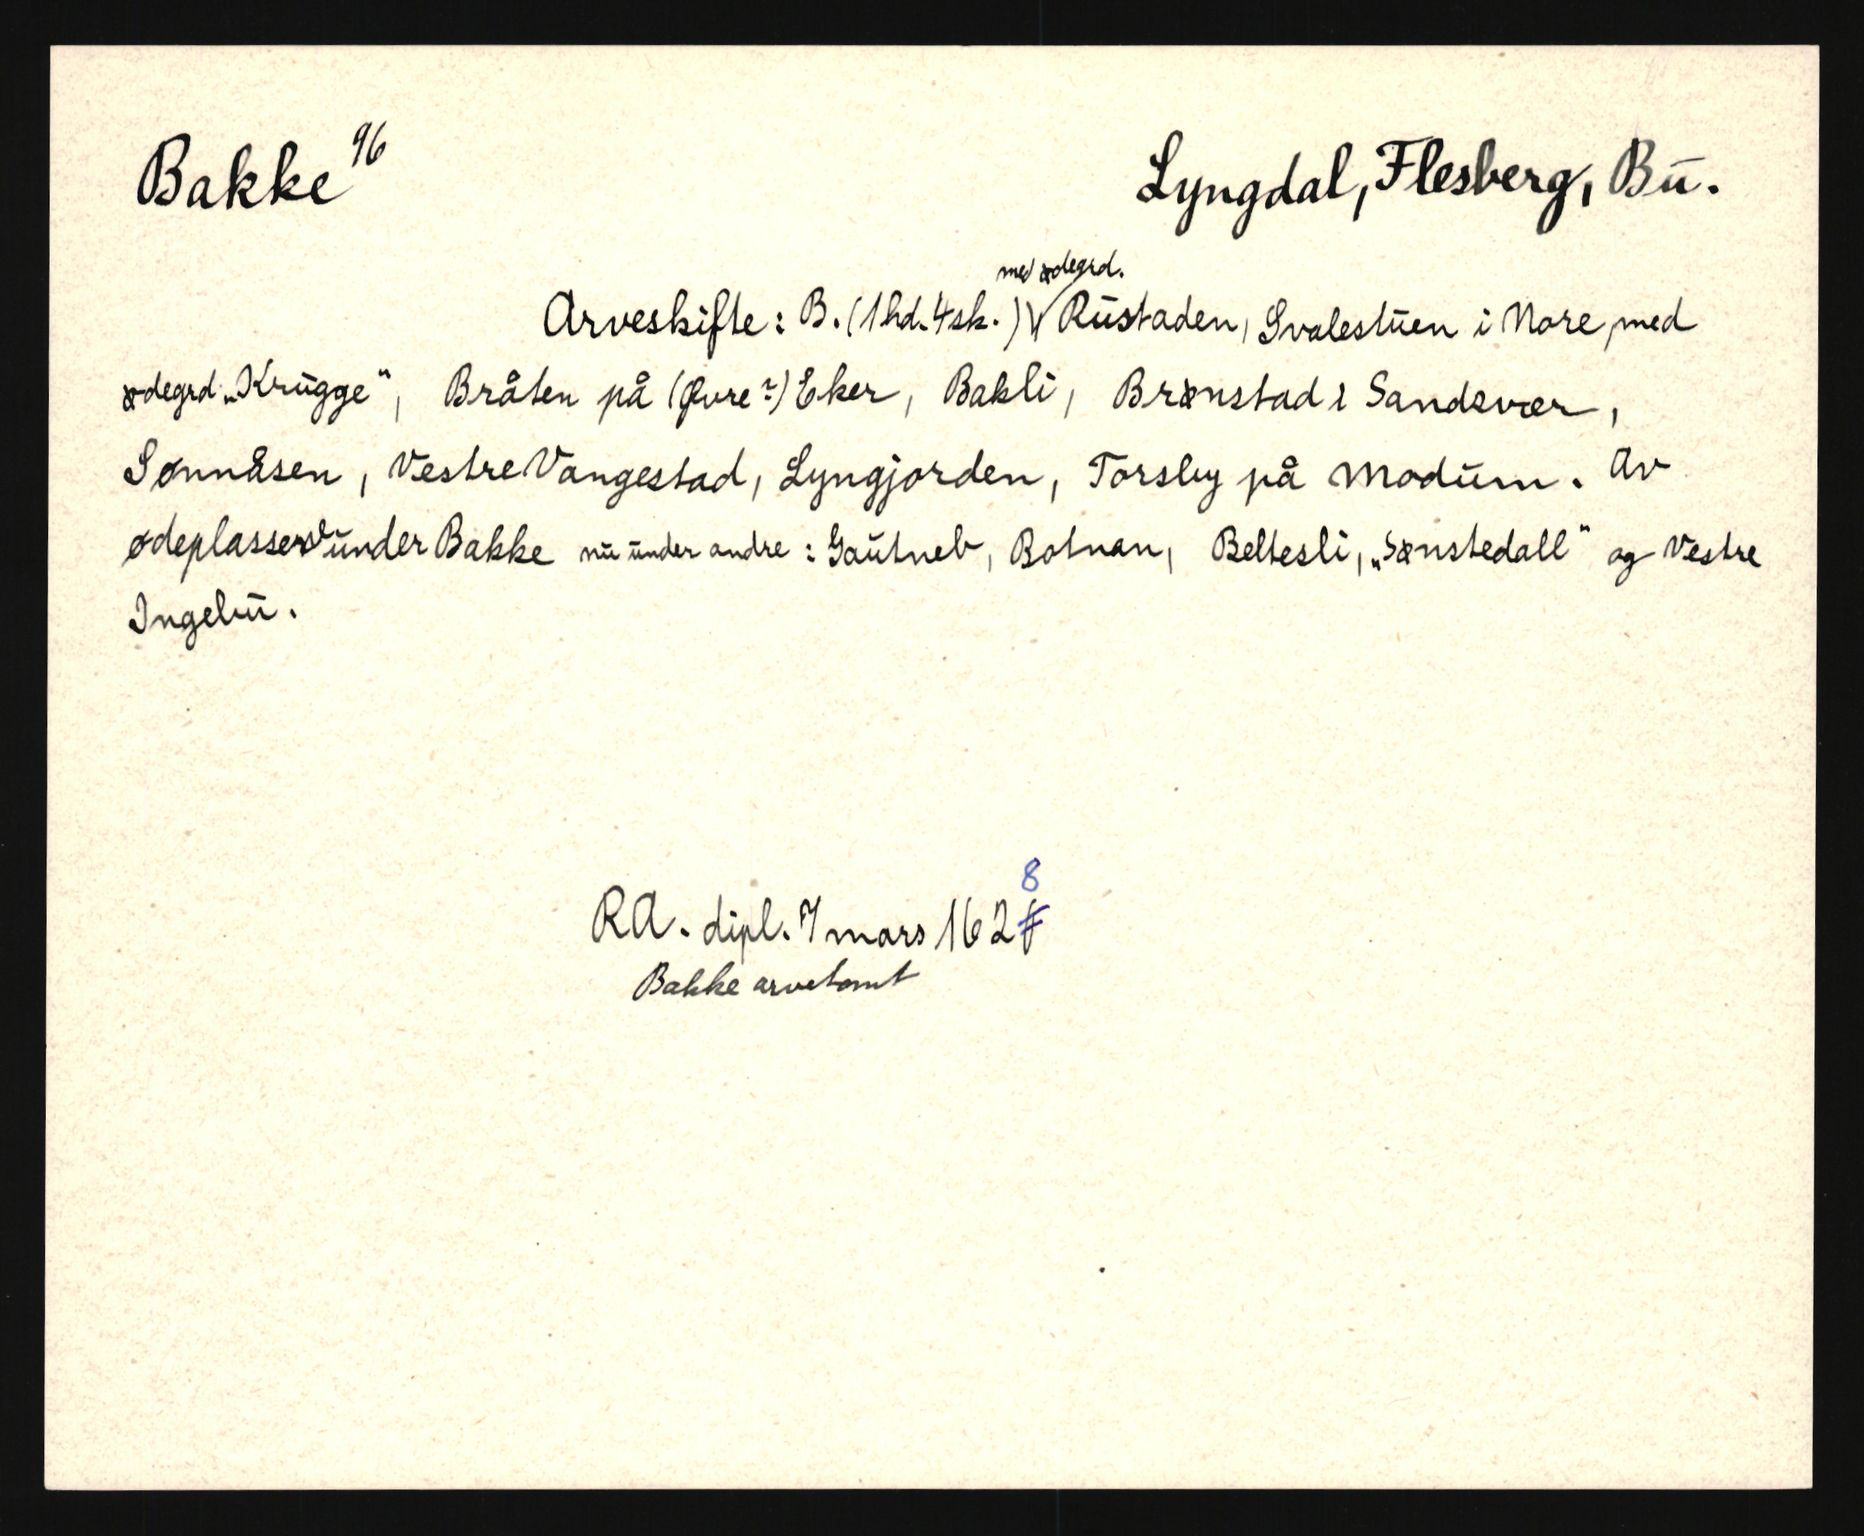 Bakke 96 Lyngdal, Flesberg, Bu.
med ødegrd.
Arveskifte: B. (1 hd. 4 sk.) V Rustaden, Svalestuen i Nore, med
ødegrd „Krugge“, Bråten på (Øvre?) Eker, Bakli, Brønstad i Sandsvær,
Sønnåsen, Vestre Vangestad, Lyngjorden, Torsby på Modum. Av
ødeplasser under Bakke nu under andre: Gautneb, Botnan, Beltesli, „Sønstedall“ og Vestre
Ingebu.
8
RA. dipl. 7 mars 162
Bakke arvetomt